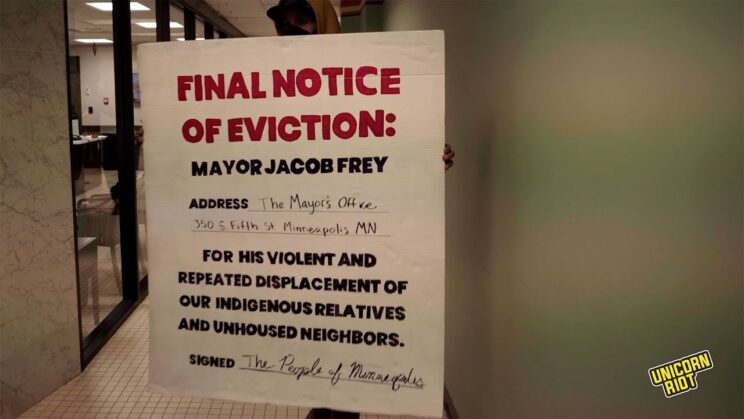 FINAL NOTICE
OF EVICTION:
MAYOR JACOB FREY
ADDRESS The Mayor's Office
350 S. Fifth St Minneapolis MN
FOR HIS VIOLENT AND
REPEATED DISPLACEMENT OF
OUR INDIGENOUS RELATIVES
AND UNHOUSED NEIGHBORS.
SIGNED The People of Minneapolis
UNICORN
RIOT